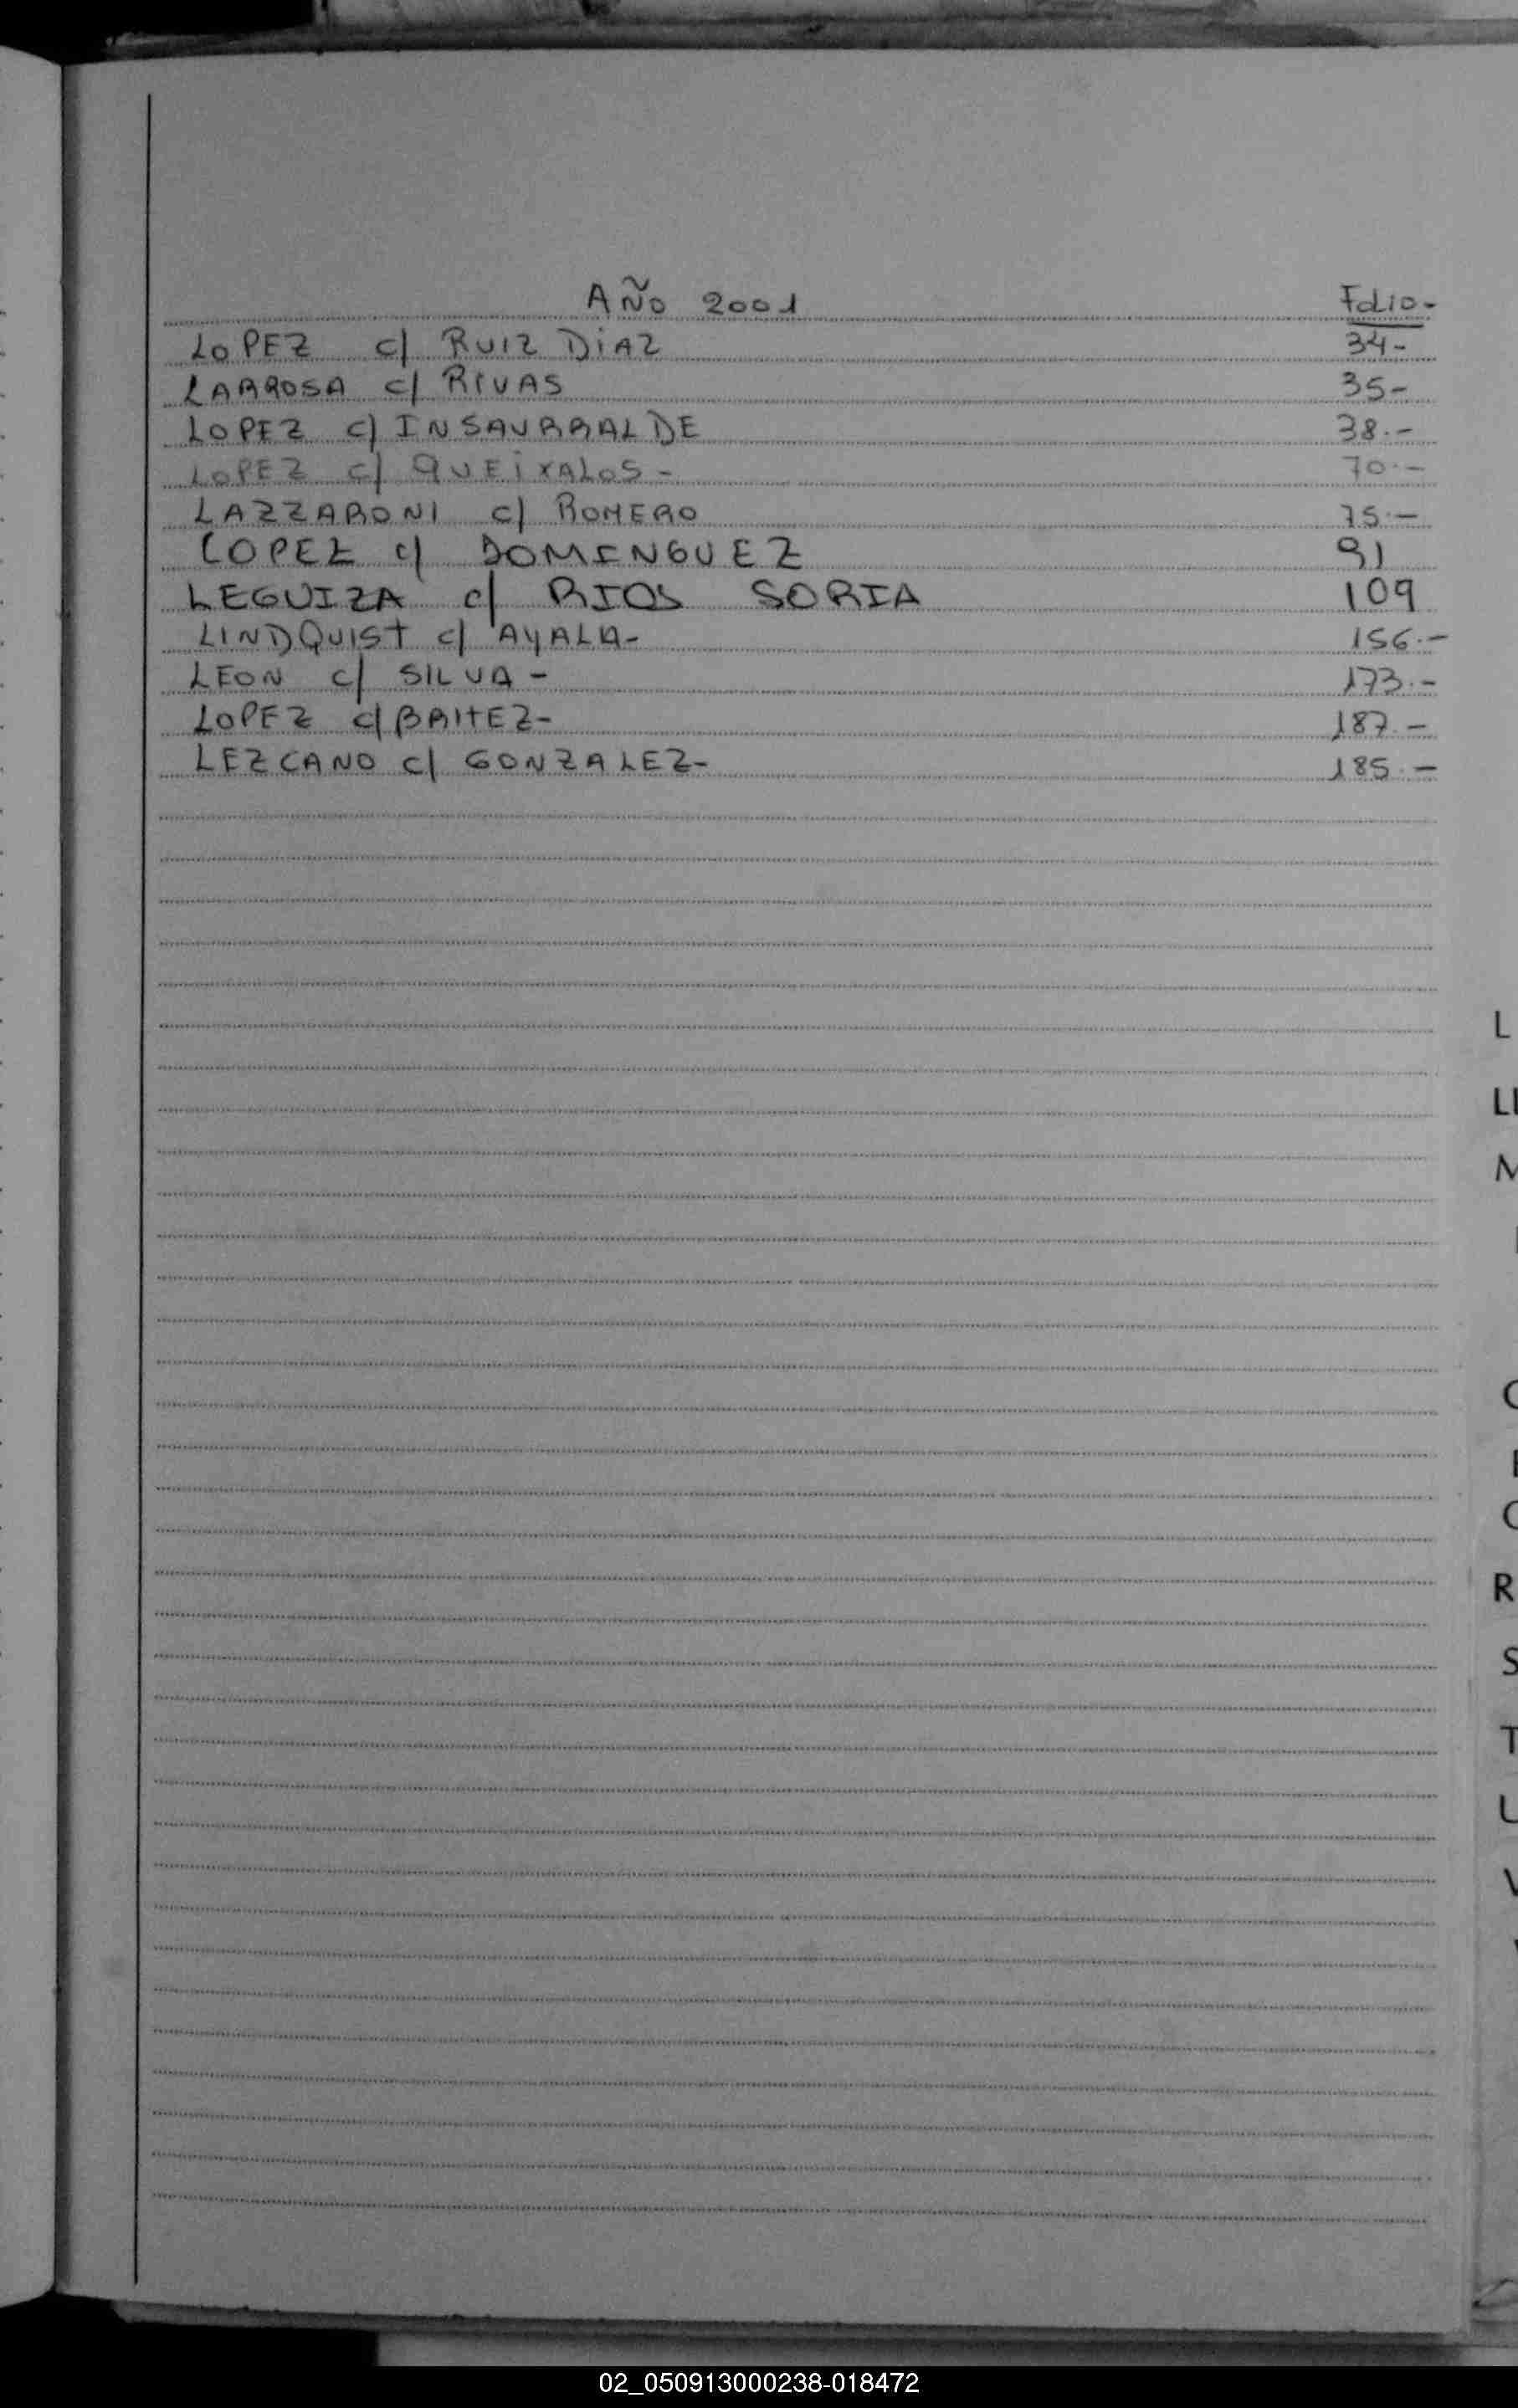 AÑO 2001 Folio-
LOPEZ c/ RUIZ DiAZ 34-
LARROSA c/ RIVAS 35-
LOPEZ c/ INSAURRALDE 38.-
LOPEZ c/ QUEiXALOS- 70.-
LAZZARONI c/ ROMERO 75.-
LOPEZ c/ DOMINGUEZ 91
LEGUIZA c/ RIOS SORIA 109
LINDQUIST c/ AYALA- 156.-
LEON c/ SILVA- 173.-
LOPEZ c/ BRITEZ- 187.-
LEZCANO c/ GONZALEZ- 185.-
L
LL
M
R
S
T
U
V
02_050913000238-018472